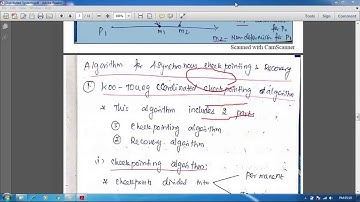 P1
m1
m2
m2 = Non deterministic for P2
Scanned with CamScanner
Algorithm for Asynchronous checkpointing & Recovery
① Koo-Toueg coordinated checkpointing algorithm
* This algorithm includes 2 parts
① Checkpointing algorithm
② Recovery algorithm
i) checkpointing algorithm:
* checkpoints divided into
permanent